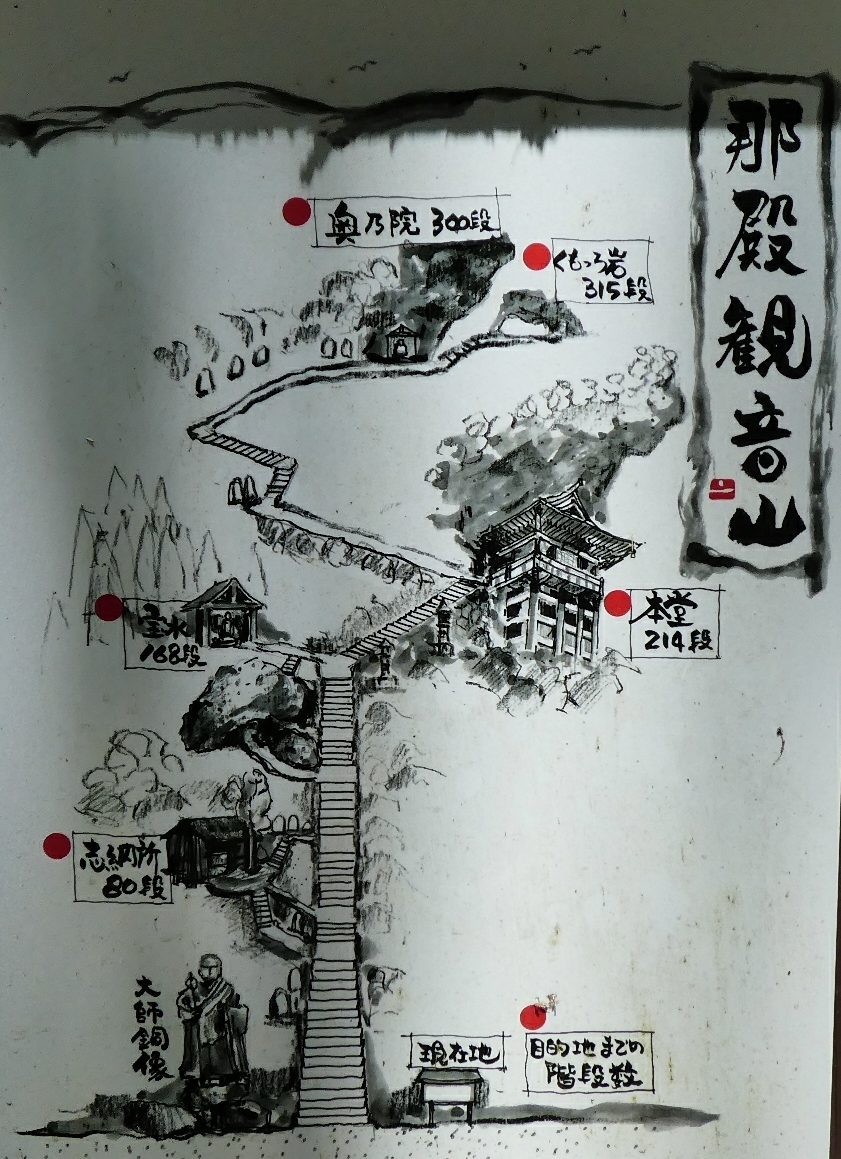 那殿観音山
奥乃院 300段
315段
本堂
214段
宝水
168段
志納所
80段
大師銅像
現在地
目的地までの
階段数